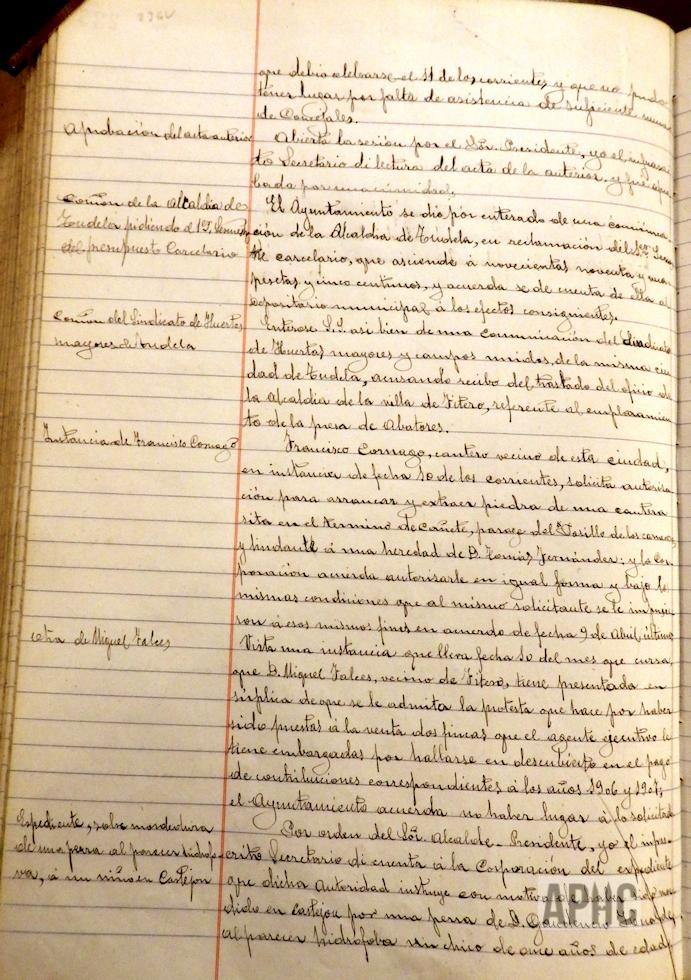 que debio celebrarse el 11 de los corrientes y que no pudo
tener lugar por falta de asistencia de suficiente nume
de Concejales.
Aprobación del acta anterior
Abierta la sesión por el Sor. Presidente, yo el infrascri
to Secretario di lectura del acta de la anterior y fue apro
bada por unanimidad.
Comón de la Alcaldia de
Tudela pidiendo el 1er Semes
del presupuesto Carcelario
El Ayuntamiento se dio por enterado de una comunica
ción de la Alcaldia de Tudela, en reclamación del 1er Semes
tre carcelario, que asciende á novecientas noventa y
pesetas y cinco centimos, y acuerda se de cuenta de ella al
Depositario municipal á los efectos consiguientes.
Comón del Sindicato de Huertas
mayores de Tudela
Enterose S.S. asi bien de una comunicación del Sindicato
de Huertas mayores y campos unidos, de la misma ciu
dad de Tudela, acusando recibo del traslado del oficio de
la Alcaldia de la villa de Fitero, referente al emplazamien
to de la presa de Abatores.
Instancia de Francisco Cornago
Francisco Cornago, cantero vecino de esta ciudad,
en instancia de fecha 10 de los corrientes, solicita autoriza
ción para arrancar y extraer piedra de una cantera
sita en el termino de Cañete, parage del Pasillo de los
y lindante á una heredad de D. Tomás Fernández: y la Cor
poración acuerda autorizarle en igual forma y bajo la
mismas condiciones que al mismo solicitante se le impusie
ron á esos mismos fines en acuerdo de fecha 9 de Abril último
otra de Miguel Falces
Vista una instancia que lleva fecha 10 del mes que cursa,
que D. Miguel Falces, vecino de Fitero, tiene presentada en
súplica de que se le admita la protesta que hace por haber
sido puestas á la venta dos fincas que el agente ejecutivo le
tiene embargadas por hallarse en descubierto en el pago
de contribuciones correspondientes á los años 1906 y 1907;
el Ayuntamiento acuerda no haber lugar á lo solicitado
Expediente, sobre mordedura
de una perra al parecer hidrofo
va, á un niño en Castejon
Por orden del Sor. Alcalde-Presidente, yo el infras
crito Secretario di cuenta á la Corporación del expediente
que dicha Autoridad instruye con motivo de haber sido mor
dido en Castejon por una perra de D.
al parecer hidrofoba un chico de once años de edad,
APHC